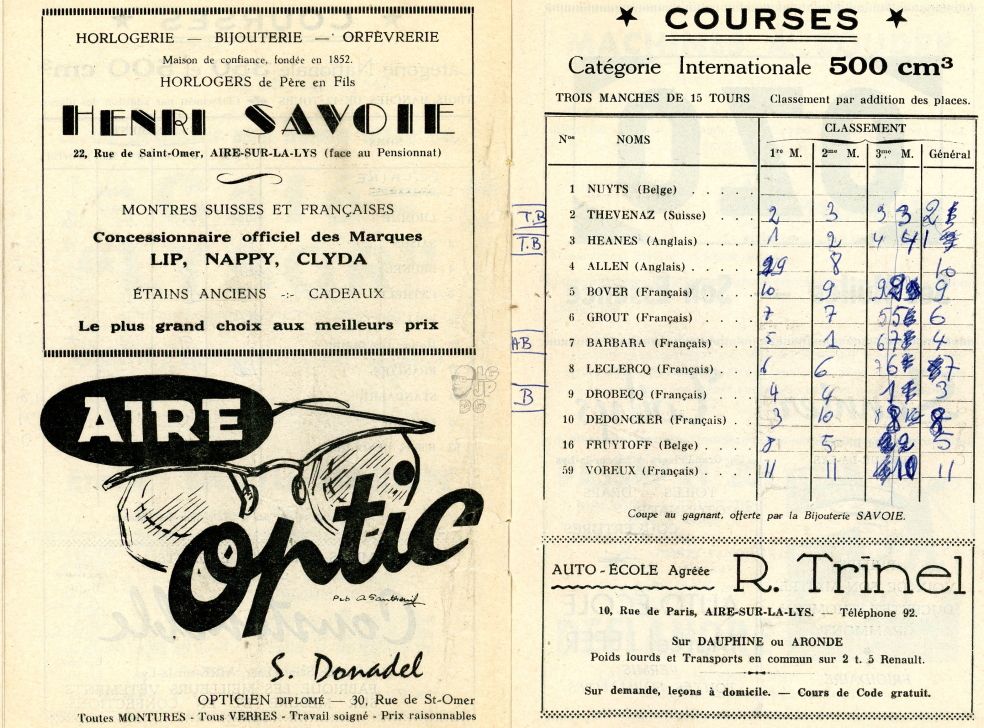 HORLOGERIE — BIJOUTERIE — ORFÈVRERIE
Maison de confiance, fondée en 1852.
HORLOGERS de Père en Fils
HENRI SAVOIE
22, Rue de Saint-Omer, AIRE-SUR-LA-LYS (face au Pensionnat)
MONTRES SUISSES ET FRANÇAISES
Concessionnaire officiel des Marques
LIP, NAPPY, CLYDA
ÉTAINS ANCIENS -:- CADEAUX
Le plus grand choix aux meilleurs prix
AIRE
Optic
S. Donadel
OPTICIEN DIPLOMÉ — 30, Rue de St-Omer
Toutes MONTURES - Tous VERRES - Travail soigné - Prix raisonnables
★ COURSES ★
Catégorie Internationale 500 cm³
TROIS MANCHES DE 15 TOURS Classement par addition des places.
Nos NOMS CLASSEMENT
1re M. 2me M. 3me M. Général
1 NUYTS (Belge) . . . . .
T.B 2 THEVENAZ (Suisse) . . . 2 3 3 3 2
T.B 3 HEANES (Anglais) . . . . 1 2 4 4 1
4 ALLEN (Anglais) . . . . . 9 8 10
5 BOVER (Français) . . . . 10 9 9
6 GROUT (Français) . . . . 7 7 5 5 6
AB 7 BARBARA (Français) . . . 5 1 6 7 4
8 LECLERCQ (Français) . . . 6 6 7 6 7
B 9 DROBECQ (Français) . . . 4 4 1 3
10 DEDONCKER (Français) . . 3 10 8 8
16 FRUYTOFF (Belge) . . . . 8 5 2 5
59 VOREUX (Français) . . . . 11 11 10 11
Coupe au gagnant, offerte par la Bijouterie SAVOIE.
AUTO-ÉCOLE Agréée R. Trinel
10, Rue de Paris, AIRE-SUR-LA-LYS. — Téléphone 92.
Sur DAUPHINE ou ARONDE
Poids lourds et Transports en commun sur 2 t. 5 Renault.
Sur demande, leçons à domicile. — Cours de Code gratuit.